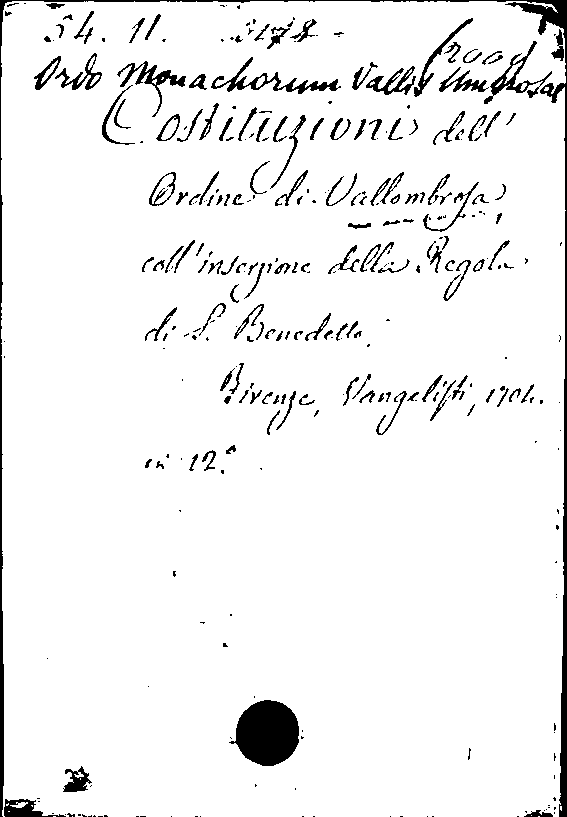 54. 11.
Ordo Monachorum Vallis Umbrosae
Costituzioni dell'
Ordine di Vallombrosa
coll'inserzione della Regola
di S. Benedetto.
Firenze, Vangelisti, 1704.
in 12.º